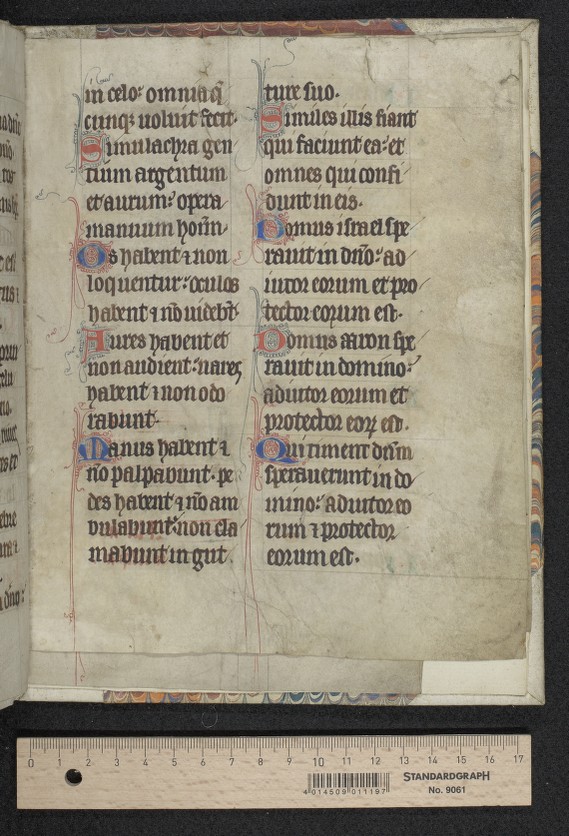 in celo: omnia q̃
cunq; uoluit fecit·
Simulachra gen
tium argentum
et aurum: opera
manuum hoĩm·
Os habent ⁊ non
loquentur: oculos
habent ⁊ nõ uidebt̃·
Aures habent et
non audient: nares
habent ⁊ non odo
rabunt·
Manus habent ⁊
nõ palpabunt· pe
des habent ⁊ nõ am
bulabunt: non cla
mabunt in gut
ture suo·
Similes illis fiant
qui faciunt ea: et
omnes qui confi
dunt in eis·
Domus israel spe
rauit in dño: ad
iutor eorum et pro
tector eorum est·
Domus aaron spe
rauit in domino:
adiutor eorum et
protector eoꝝ est·
Qui timent dñm
sperauerunt in do
mino: adiutor eo
rum ⁊ protector
eorum est·
0 1 2 3 4 5 6 7 8 9 10 11 12 13 14 15 16 17
4 014509 011197
STANDARDGRAPH
No. 9061